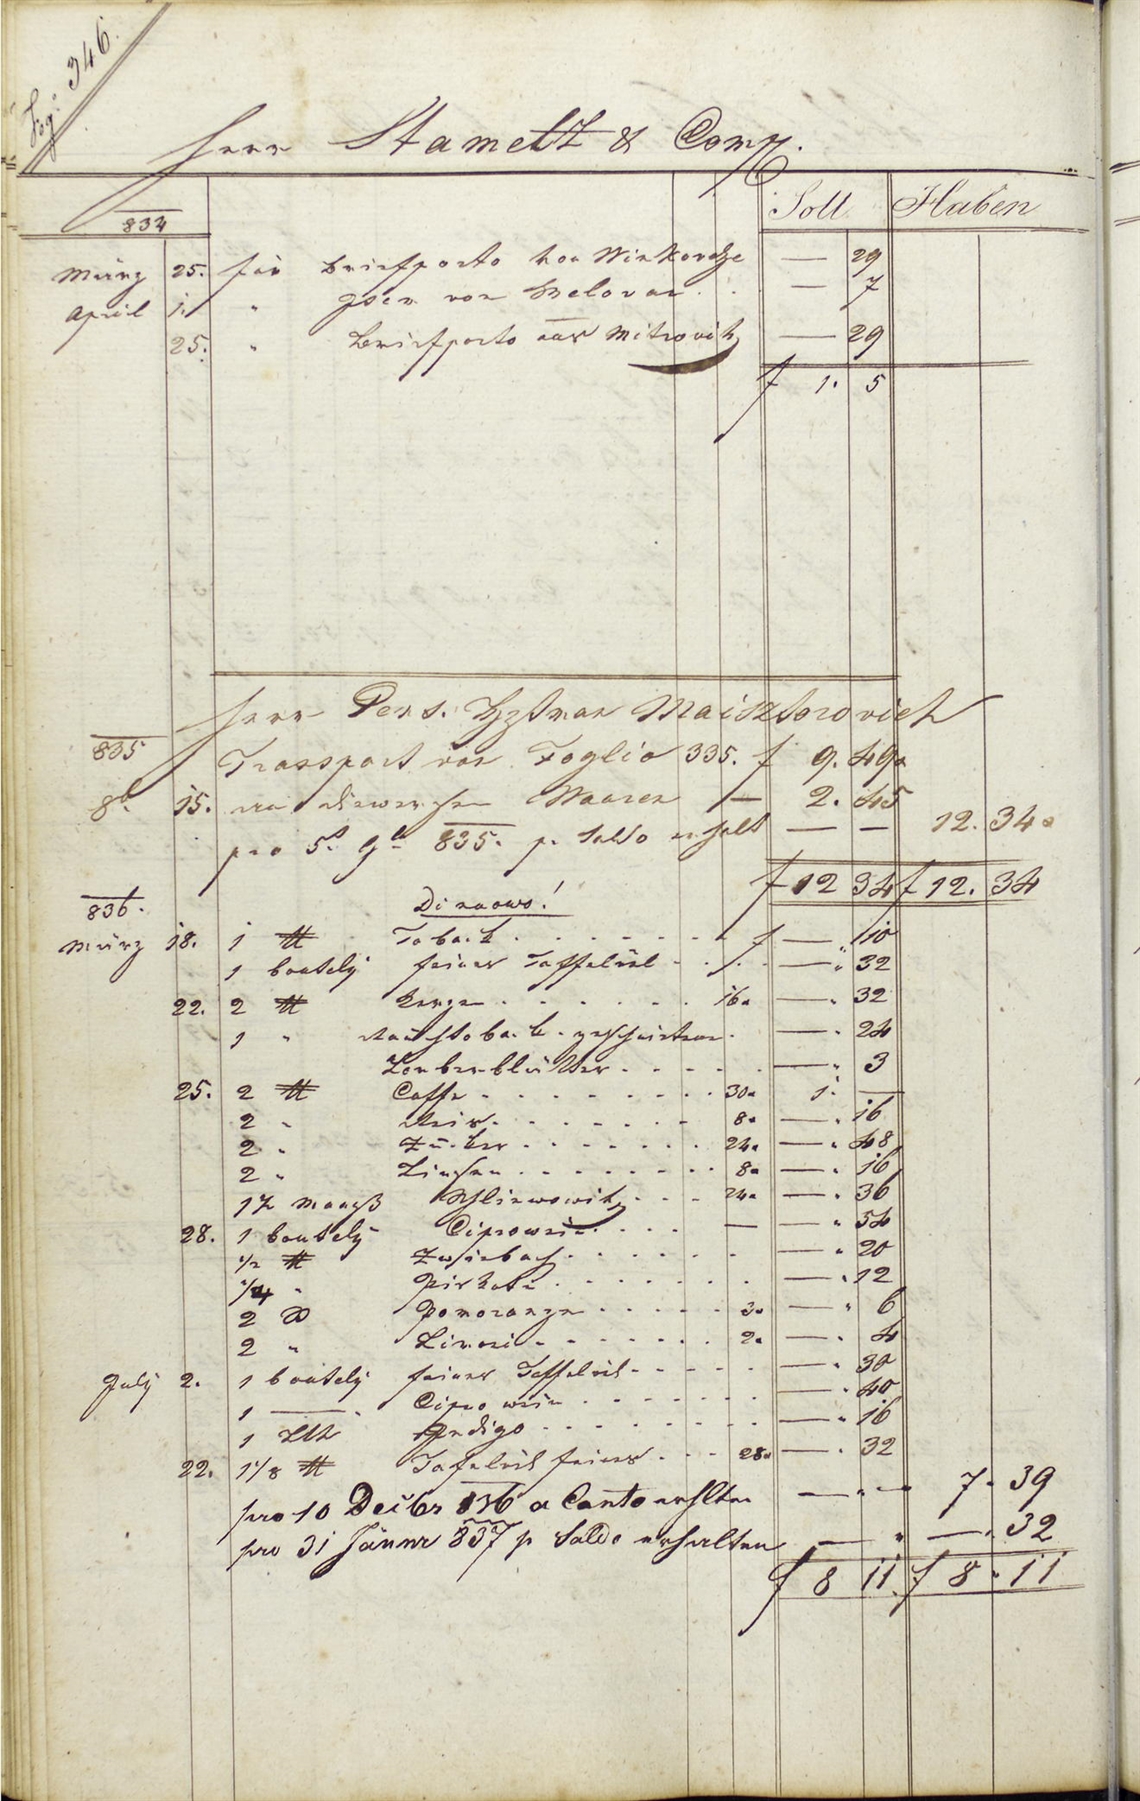 Fog: 346.
Herr Stamettz & Comp.
Soll Haben
834
März 25. für Briefporto von Winkovcze — 29
April 1. " von Belovar — 7
25. " Briefporto aus Mitrovitz — 29
f 1. 5
Herr Maisztorovich
835 Transport von Foglio 335. f 9. 49
8b. 15. Waaren — 2. 45
pro 5t 9b 835. p. Saldo erhalt — — 12. 34
f 12 34 f 12. 34
836. Dinaows!
März 18. 1 ℔ Toback f — 10
1 boutely feines Taffelöel — " 32
22. 2 ℔ Kerzen 16 — " 32
1 " Rauchtoback geschnittenen — " 24
Lorberblätter — " 3
25. 2 ℔ Caffe 30 1. —
2 " Reis 8 — " 16
2 " Zucker 24 — " 48
2 " Linsen 8 — " 16
1½ Maaß Schliwowitz 24 — " 36
28. 1 boutely Ciprowein — — " 54
1/2 ℔ Zwiebach — " 20
1/4 " Piskote — " 12
2 Pomoranzen 3 — " 6
2 " Limoni 2 — " 4
July 2. 1 boutely feines Taffelöel — " 30
1 — Cipro wein — " 40
1 Lth Indigo — " 16
22. 1 1/8 ℔ Tafelöel feines 28 — " 32
pro 10 Decibr 836 a Canto erhlten — " — 7 " 39
pro 31 Jänner 837 p Saldo erhalten — " — " 32
f 8 11 f 8 " 11